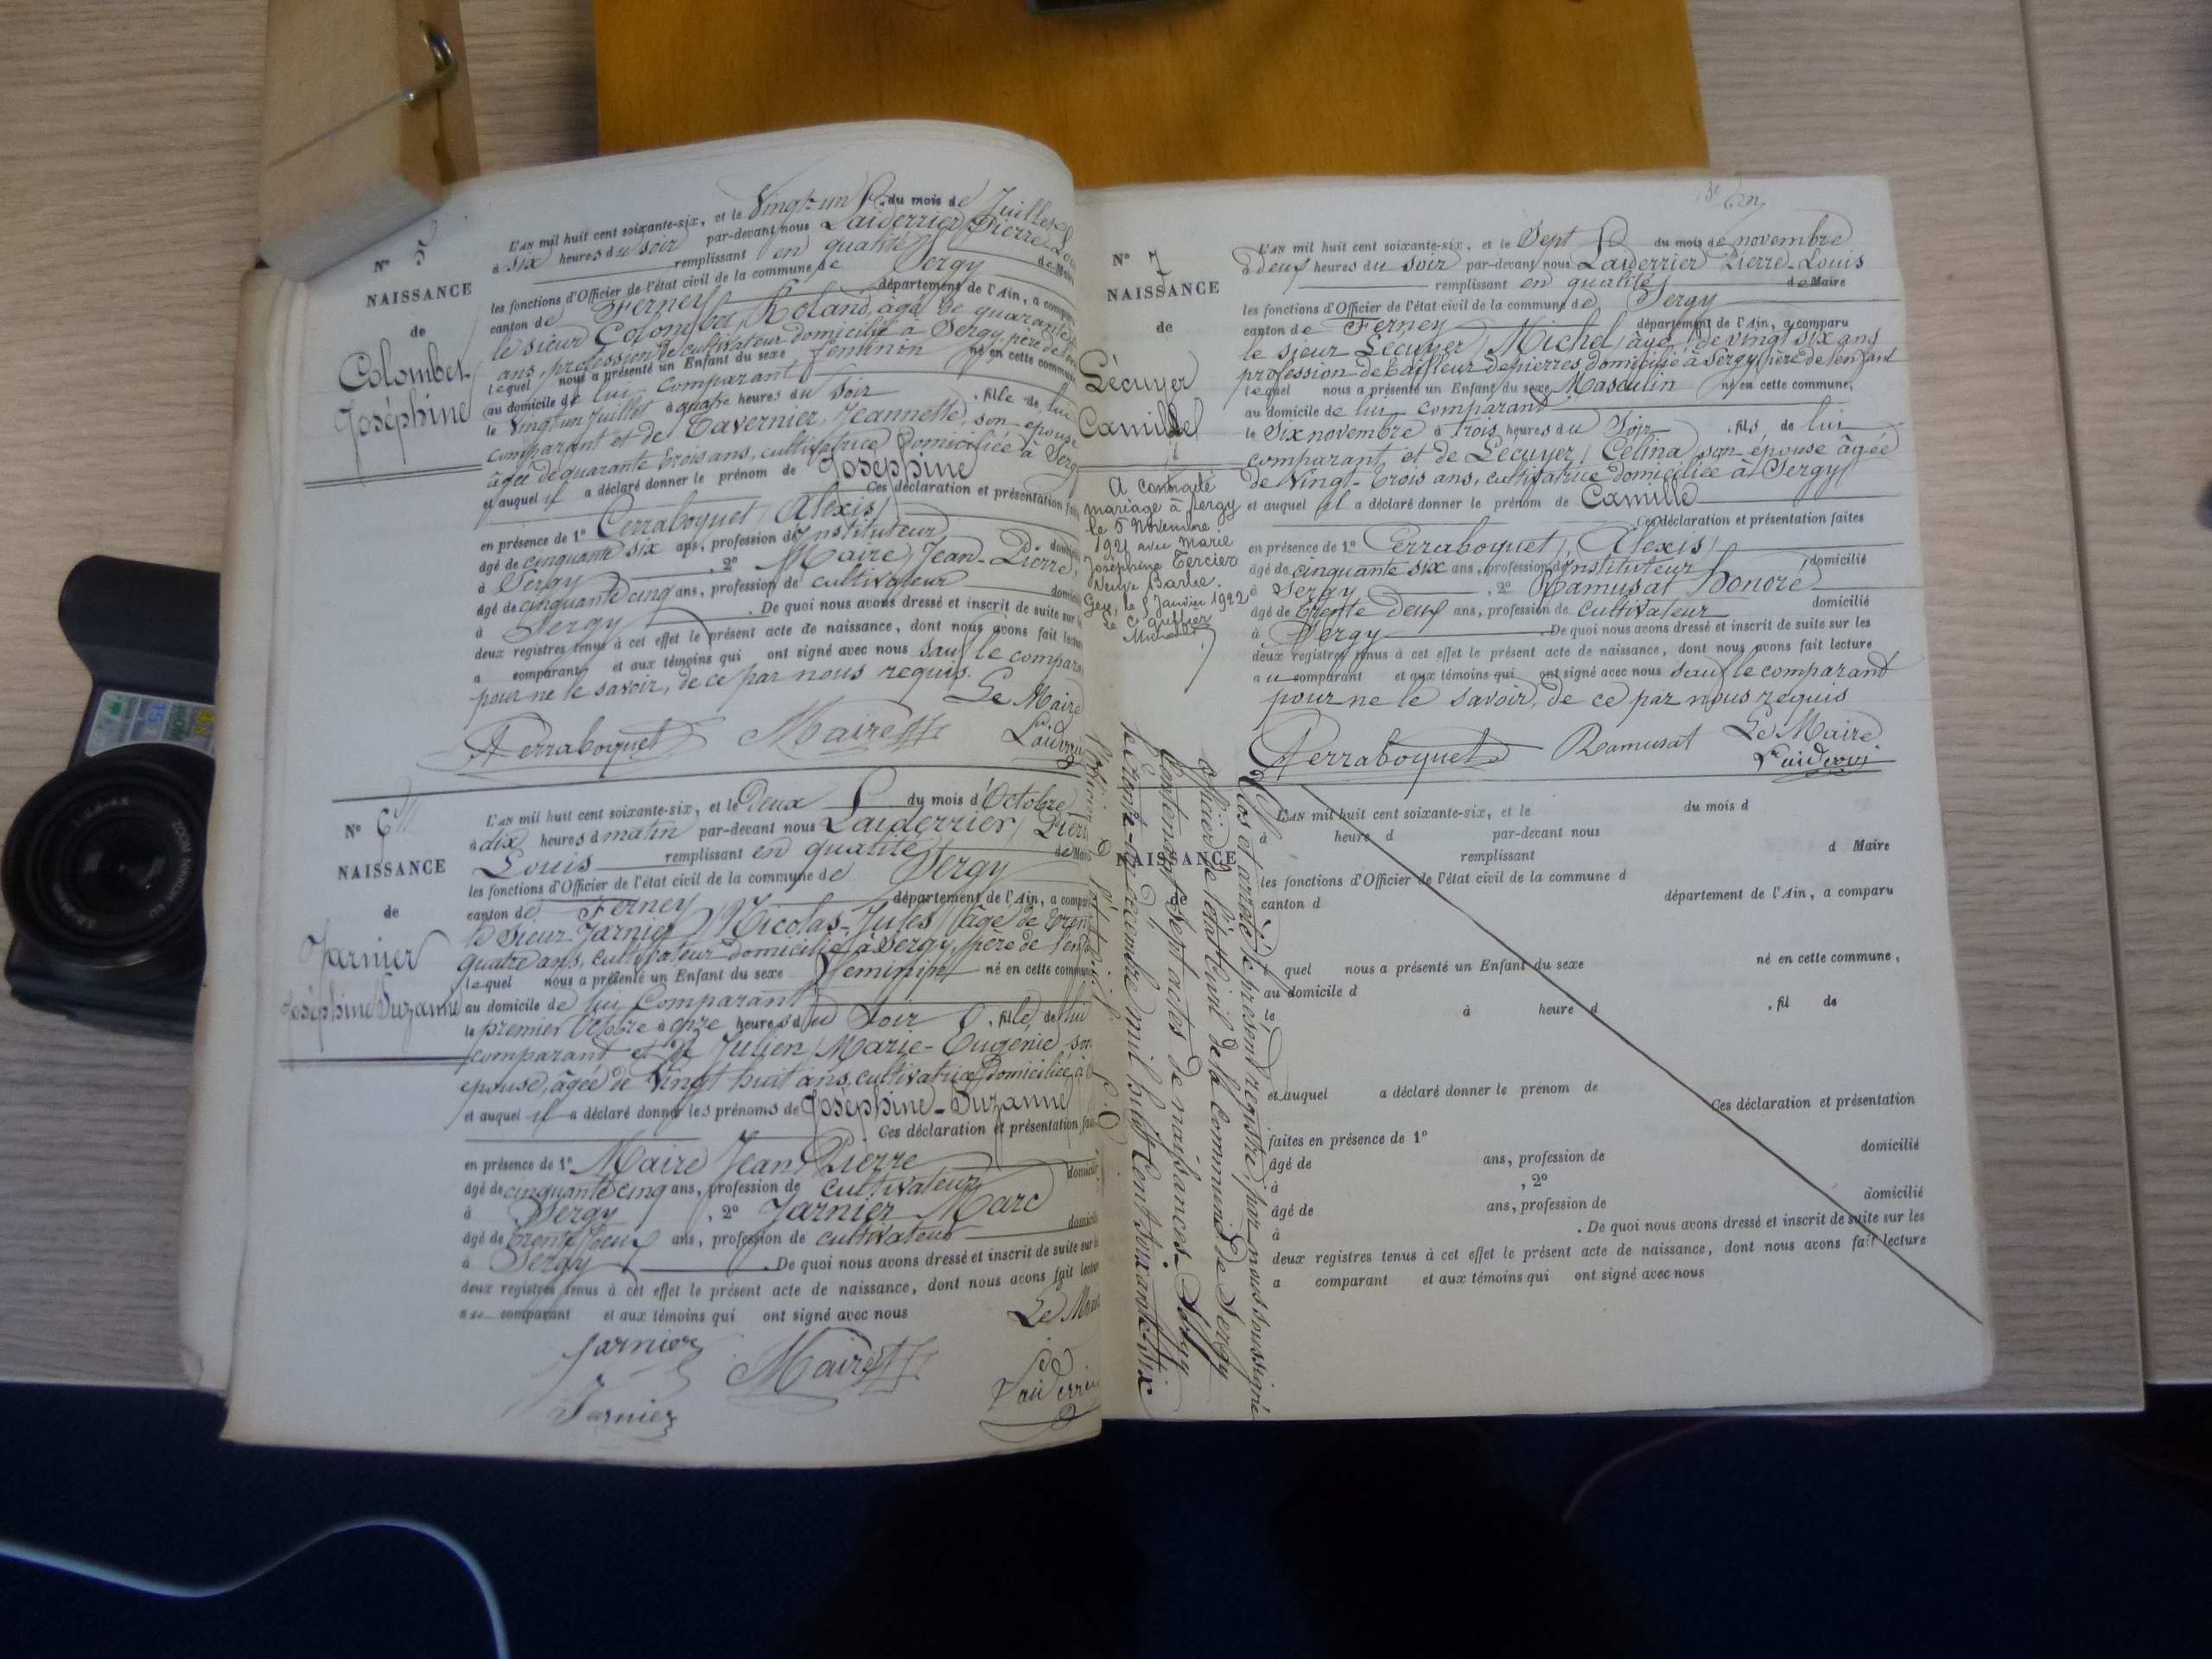 N° 5
NAISSANCE
de
Colombet
Joséphine
L'AN mil huit cent soixante-six, et le Vingt-un du mois de Juillet
à six heures du soir par-devant nous Laiderrier Pierre-Lou
remplissant en qualité de Maire
les fonctions d'Officier de l'état civil de la commune de Sergy
canton de Ferney département de l'Ain, a comparu
le sieur Colombet Roland, âgé de quarante
ans, profession de cultivateur domicilié à Sergy, père de
lequel nous a présenté un Enfant du sexe féminin né en cette commune
au domicile de lui comparant
le Vingt un Juillet à quatre heures du soir , fille de lui
comparant et de Tavernier, Jeannette, son épouse
âgée de quarante trois ans, cultivatrice domiciliée à Sergy
et auquel il a déclaré donner le prénom de Joséphine
Ces déclaration et présentation fai
en présence de 1° Perraboquet Alexis
âgé de cinquante six ans, profession d'Instituteur domici
à Sergy , 2° Maire, Jean-Pierre,
âgé de cinquante cinq ans, profession de cultivateur domici
à Sergy . De quoi nous avons dressé et inscrit de suite sur l
deux registres tenus à cet effet le présent acte de naissance, dont nous avons fait lecture
a comparant et aux témoins qui ont signé avec nous sauf le compara
pour ne le savoir, de ce par nous requis. Le Maire
Perraboquet Maire
N° 6
NAISSANCE
de
Jarnier
Joséphine Suzanne
L'AN mil huit cent soixante-six, et le Deux du mois d'Octobre
à dix heures d matin par-devant nous Laiderrier, Pierr
Louis remplissant en qualité de Mai
les fonctions d'Officier de l'état civil de la commune de Sergy
canton de Ferney département de l'Ain, a compa
le Sieur Jarnier Nicolas-Jules âgé de tren
quatre ans, cultivateur domicilié à Sergy, père de l'enf
lequel nous a présenté un Enfant du sexe féminin né en cette commune
au domicile de lui Comparant
le premier Octobre à onze heures du Soir , fille de lui
comparant et de Julien Marie-Eugénie son
épouse, âgée de Vingt huit ans, cultivatrice, domiciliée à
et auquel il a déclaré donner les prénoms de Joséphine-Suzanne
Ces déclaration et présentation fai
en présence de 1° Maire Jean Pierre
âgé de cinquante cinq ans, profession de cultivateur domici
à Sergy , 2° Jarnier Marc
âgé de trente deux ans, profession de cultivateur domici
à Sergy . De quoi nous avons dressé et inscrit de suite sur l
deux registres tenus à cet effet le présent acte de naissance, dont nous avons fait lectu
au comparant et aux témoins qui ont signé avec nous Le Mai
Jarnier Maire
Jarnier
N° 7
NAISSANCE
de
Lécuyer
Camille
A contracté
mariage à Sergy
le 5 Novembre
1921 avec Marie
Joséphine Tercier
Veuve Barbe.
Gex, le 5 Janvier 1922
Le C. Greffier
L'AN mil huit cent soixante-six, et le Sept du mois de novembre
à deux heures du soir par-devant nous Laiderrier Pierre-Louis
remplissant en qualité de Maire
les fonctions d'Officier de l'état civil de la commune de Sergy
canton de Ferney département de l'Ain, a comparu
le sieur Lécuyer Michel, âgé de vingt six ans
profession de tailleur de pierres, domicilié à Sergy, père de l'enfant
lequel nous a présenté un Enfant du sexe Masculin né en cette commune,
au domicile de lui comparant
le Six novembre à Trois heures du Soir , fils de lui
comparant et de Lécuyer Célina son épouse âgée
de Vingt-trois ans, cultivatrice domiciliée à Sergy
et auquel il a déclaré donner le prénom de Camille
Ces déclaration et présentation faites
en présence de 1° Perraboquet, Alexis,
âgé de cinquante six ans, profession d'Instituteur domicilié
à Sergy , 2° Ramusat Honoré
âgé de trente deux ans, profession de cultivateur domicilié
à Sergy . De quoi nous avons dressé et inscrit de suite sur les
deux registres tenus à cet effet le présent acte de naissance, dont nous avons fait lecture
au comparant et aux témoins qui ont signé avec nous sauf le comparant
pour ne le savoir, de ce par nous requis
Perraboquet Ramusat Le Maire
NAISSANCE
de
L'AN mil huit cent soixante-six, et le du mois d
à heure d par-devant nous
remplissant d Maire
les fonctions d'Officier de l'état civil de la commune d
canton d département de l'Ain, a comparu
quel nous a présenté un Enfant du sexe né en cette commune,
au domicile d
le à heure d , fil de
et auquel a déclaré donner le prénom de
Ces déclaration et présentation
faites en présence de 1°
âgé de ans, profession de domicilié
à , 2°
âgé de ans, profession de domicilié
à . De quoi nous avons dressé et inscrit de suite sur les
deux registres tenus à cet effet le présent acte de naissance, dont nous avons fait lecture
a comparant et aux témoins qui ont signé avec nous
Clos et arrêté le présent registre par nous soussigné
officier de l'état civil de la Commune de Sergy
Contenant sept actes de naissances. Sergy
le trente-un décembre mil huit cent soixante-six
ZOOM NIKKOR ED